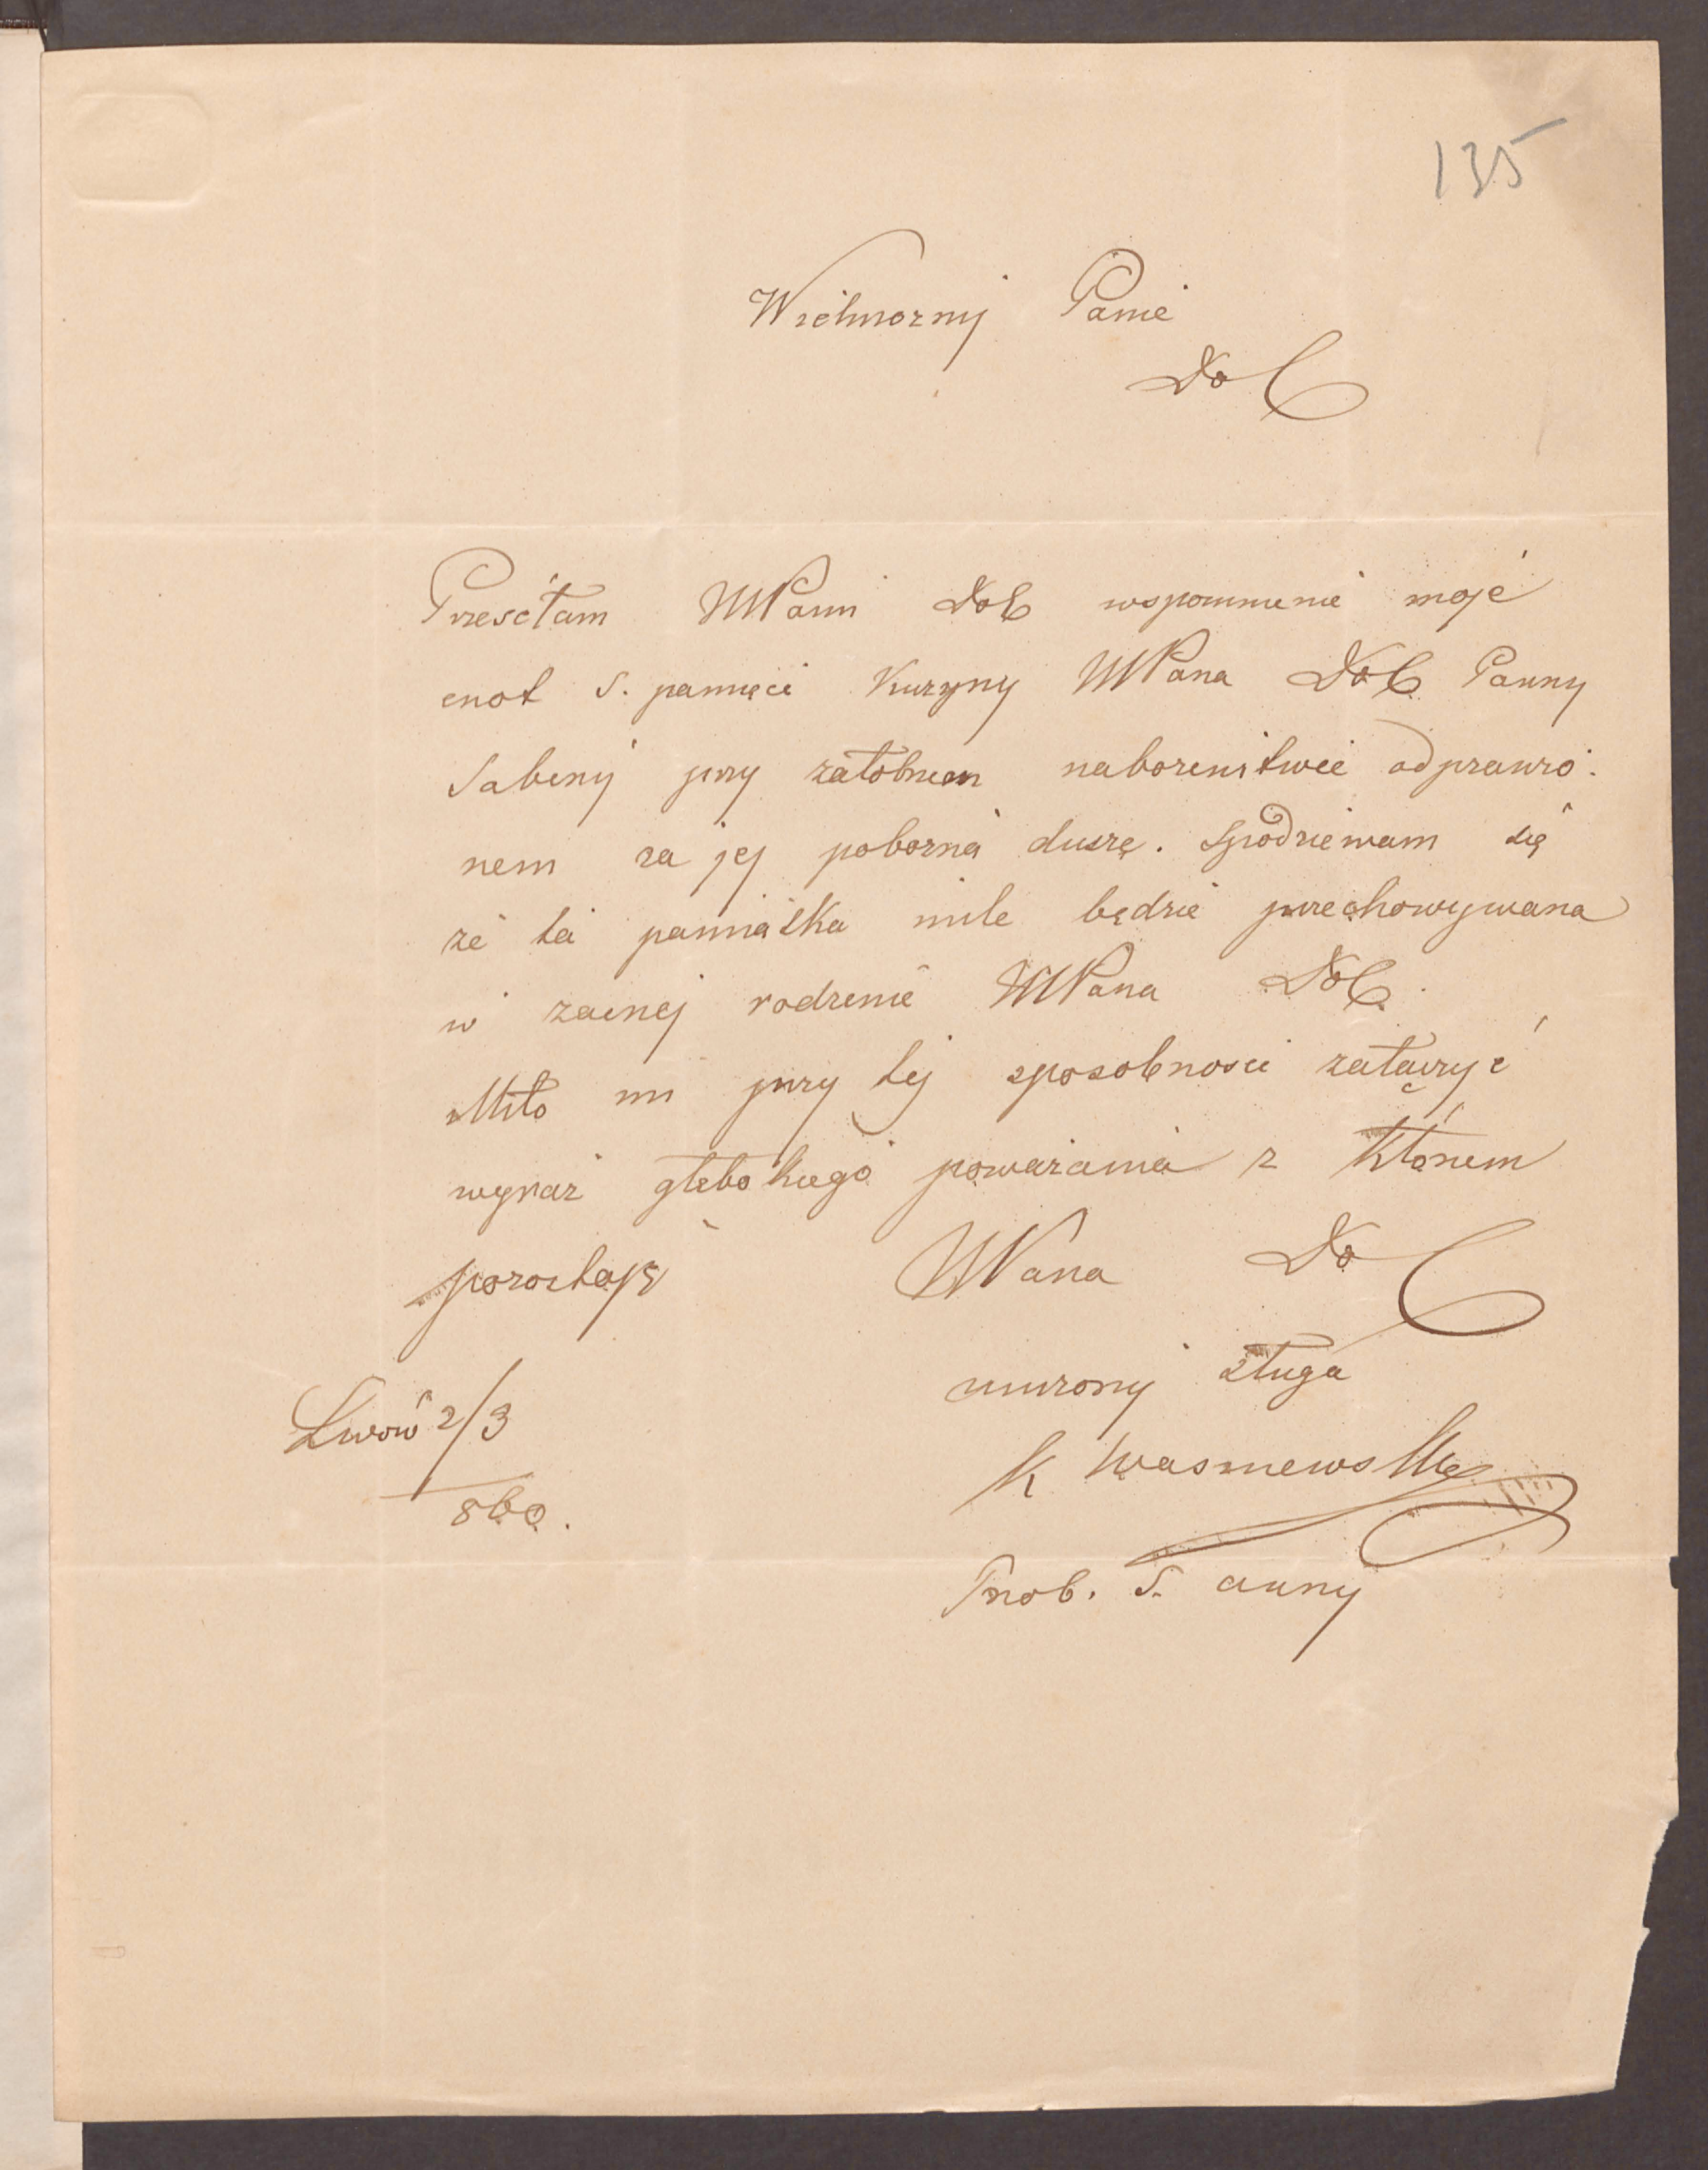 135
Wielmożny Panie
Dob
Przesełam WPani Dob wspomnienie moje
cnot S. pamięci Kuzyny WPana Dob Panny
Sabiny przy załobnem nabożeństwie odprawio-
nem za jej pobożną duszę. Spodziewam się
że ta pamiątka mile będzie przechowywana
w zacnej rodzinie WPana Dob.
Miło mi przy tej sposobności załączyć
wyraz głębokiego poważania z którem
pozostaję WPana Dob
uniżony sługa
Lwów 2/3
860.
K Waśniewski
Prob. S. Anny